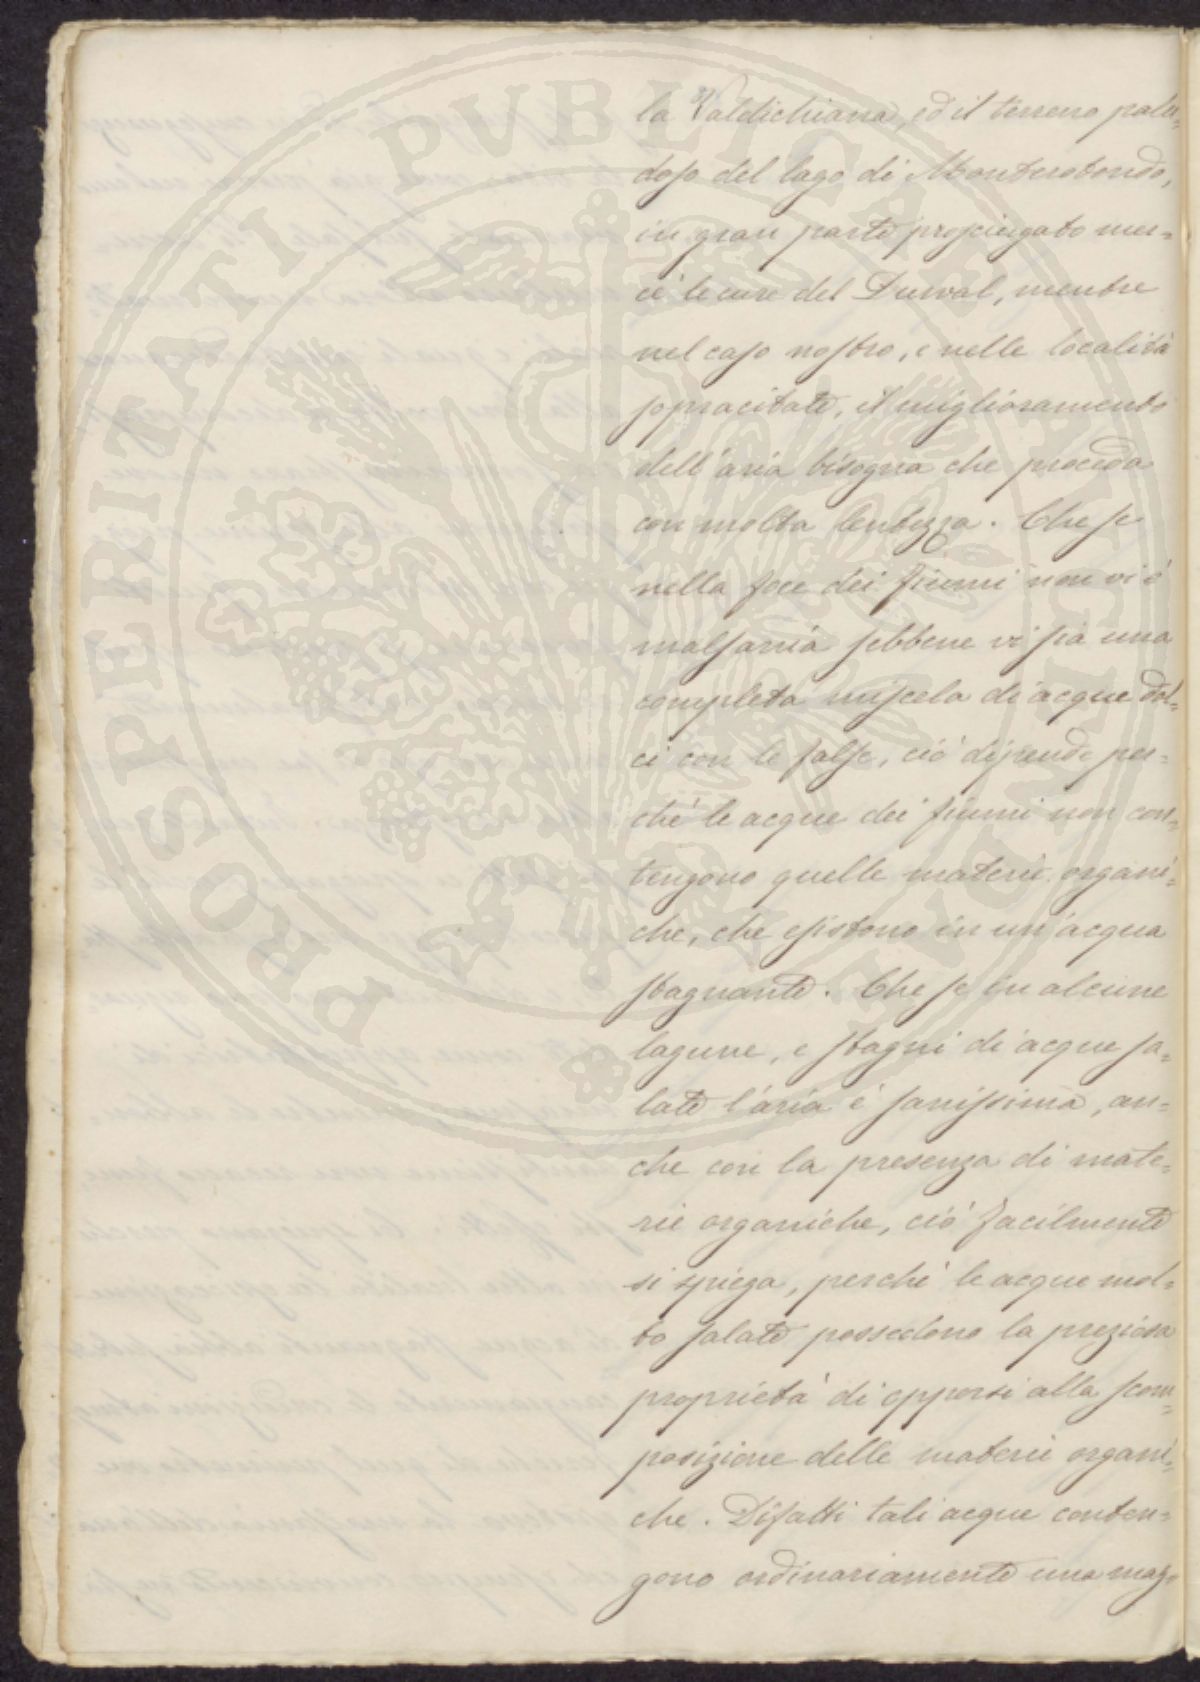 la Valdichiana, ed il terreno palu=
doso del lago di Monterotondo,
in gran parte prosciugato mer=
cè le cure del Durval, mentre
nel caso nostro, e nelle località
sopracitate, il miglioramento
dell'aria bisogna che proceda
con molta lentezza. Che se
nella foce dei fiumi non vi è
malsania sebbene vi sia una
completa miscela di acque dol=
ci con le salse, ciò dipende per=
chè le acque dei fiumi non con=
tengono quelle materie organi=
che, che esistono in un'acqua
stagnante. Che se in alcune
lagune, e stagni di acque sa=
late l'aria è sanissima, an=
che con la presenza di mate=
rie organiche, ciò facilmente
si spiega, perchè le acque mol=
to salate possedono la preziosa
proprietà di opporsi alla scom=
posizione delle materie organi=
che. Difatti tali acque conten=
gono ordinariamente una mag=
PROSPERITATI PVBLICAE AVGENDAE